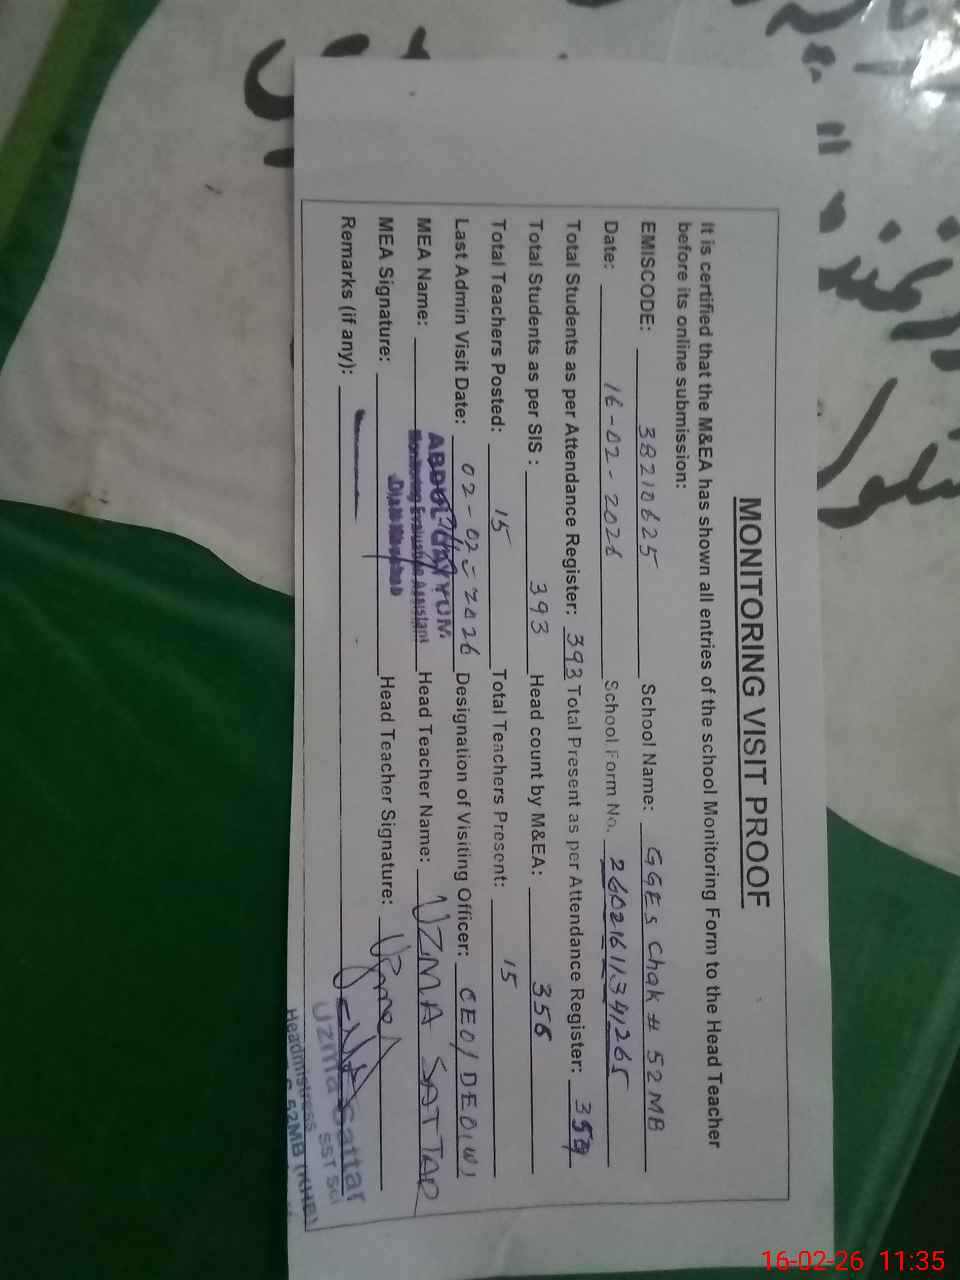 MONITORING VISIT PROOF
It is certified that the M&EA has shown all entries of the school Monitoring Form to the Head Teacher
before its online submission:
EMISCODE: 38210625 School Name: GGES Chak # 52 MB
Date: 16-02-2026 School Form No. 26021611341265
Total Students as per Attendance Register: 393 Total Present as per Attendance Register:
Total Students as per SIS: 393 Head count by M&EA: 356
Total Teachers Posted: 15 Total Teachers Present: 15
Last Admin Visit Date: 02-02-2026 Designation of Visiting Officer: CEO/DEO(W)
MEA Name: ABDUL QAYYUM Head Teacher Name: UZMA SATTAR
Monitoring Evaluation Assistant
MEA Signature: Head Teacher Signature:
Remarks (if any):
Uzma Sattar
SST Sci
Headmistress
52MB (KHB)
16-02-26 11:35